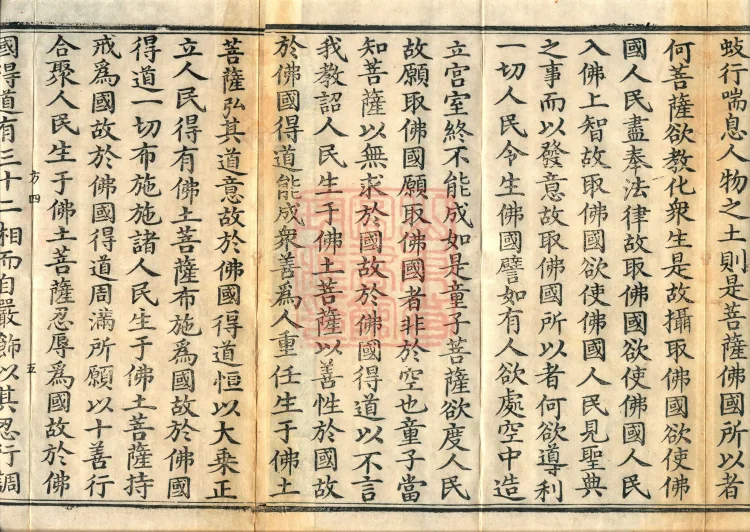 蚑行喘息人物之土則是菩薩佛國所以者
何菩薩欲教化衆生是故攝取佛國欲使佛
國人民盡奉法律故取佛國欲使佛國人民
入佛上智故取佛國欲使佛國人民見聖典
之事而以發意故取佛國所以者何欲導利
一切人民令生佛國譬如有人欲處空中造
立宫室終不能成如是童子菩薩欲度人民
故願取佛國願取佛國者非於空也童子當
知菩薩以無求於國故於佛國得道以不言
我教詔人民生于佛土菩薩以善性於國故
於佛國得道能成衆善爲人重任生于佛土
菩薩弘其道意故於佛國得道恒以大乘正
立人民得有佛土菩薩布施爲國故於佛國
得道一切布施施諸人民生于佛土菩薩持
戒爲國故於佛國得道周滿所願以十善行
合聚人民生于佛土菩薩忍辱爲國故於佛
方四
五
國得道有三十二相而自嚴飾以其忍行調